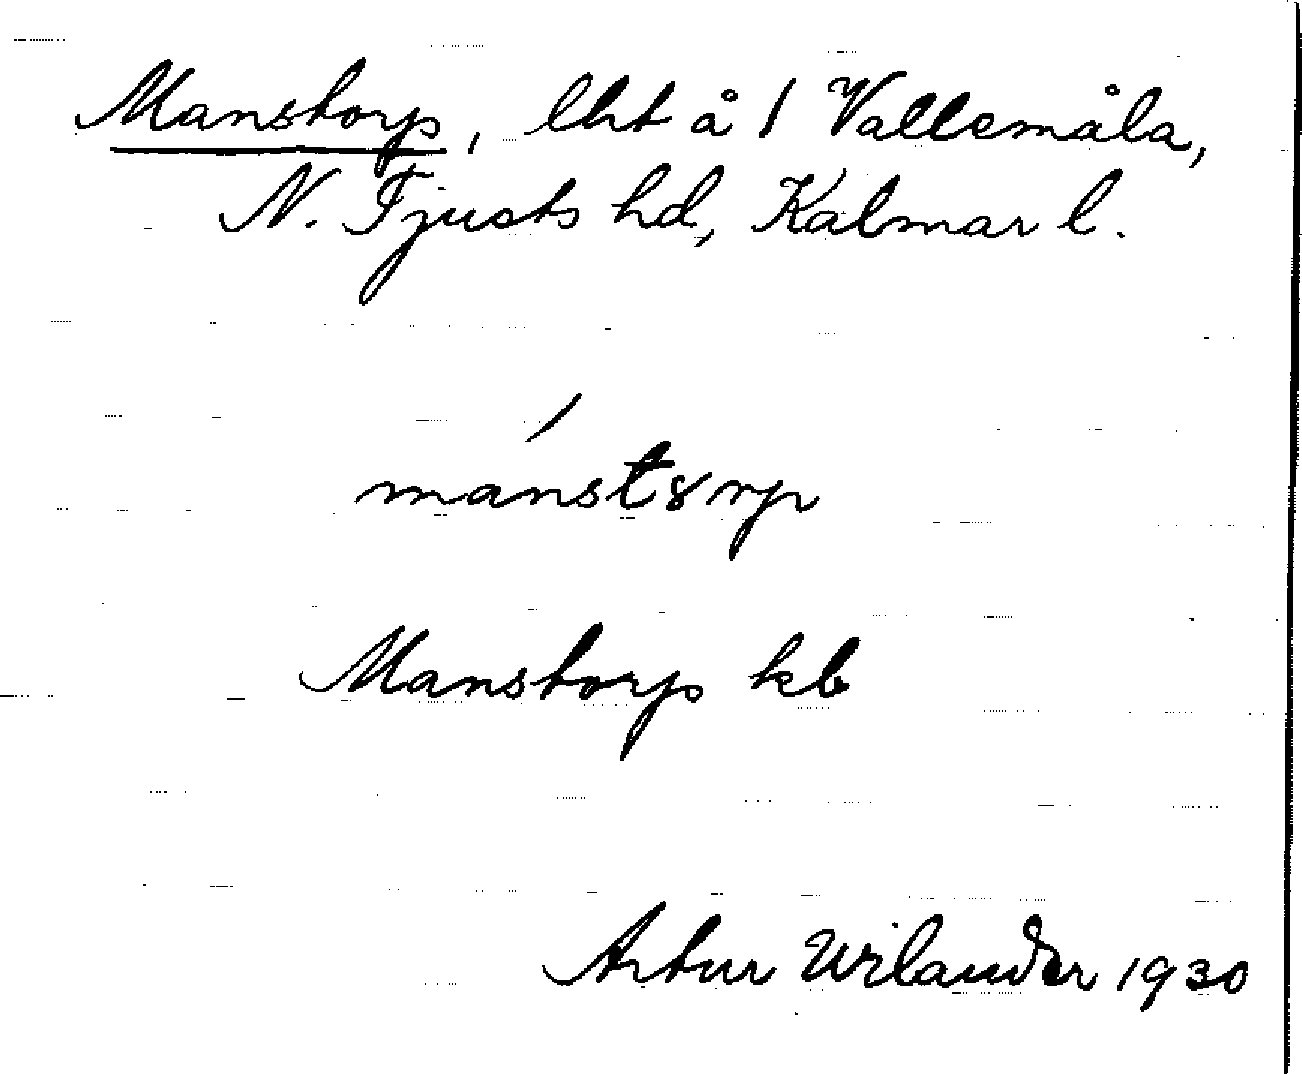 Manstorp, lht å 1 Vallemåla,
N. Tjusts hd, Kalmar l.
mánstɤrp
Manstorp kb
Artur Wilander 1930